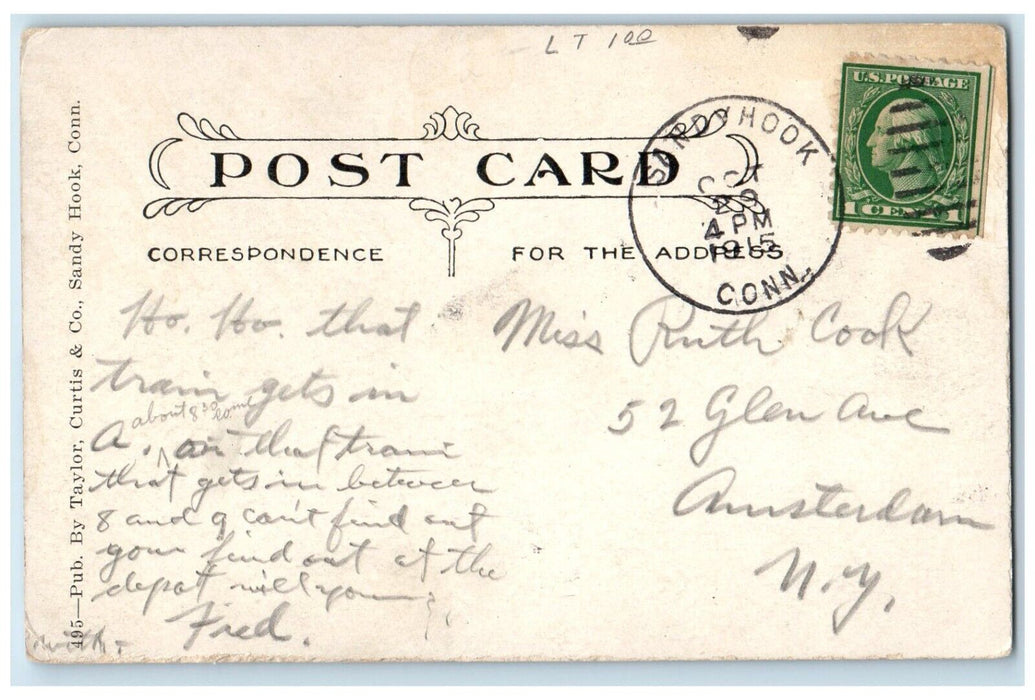 LT 1.00
U.S. POSTAGE
1 CENT 1
SANDYHOOK
OCT
4 PM
1915
CONN.
POST CARD
CORRESPONDENCE
FOR THE ADDRESS
495—Pub. By Taylor, Curtis & Co., Sandy Hook, Conn.
Ho. Ho. that
train gets in
about 8 30
A. on that train
that gets in between
8 and 9 can't find out
your find out at the
depot will you
Fred.
Miss Ruth Cook
52 Glen Ave
Amsterdam
N.Y.